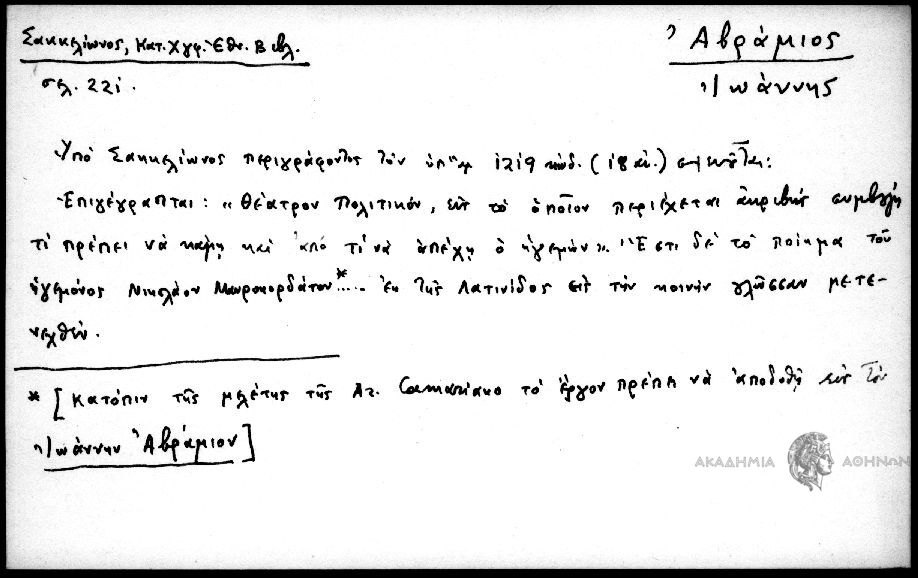 Σακκελίωνος, Κατ. Χγφ. Ἐθν. Βιβλ.
σελ. 221.
Ἀβράμιος
Ἰωάννης
Ὑπὸ Σακκελίωνος περιγράφοντος τὸν ὑπ' 1219 κώδ. (18 αἰ.) σημειοῦται:
Ἐπιγέγραπται: «Θέατρον Πολιτικόν, εἰς τὸ ὁποῖον περιέχεται ἀκριβὴς συμβουλὴ
τί πρέπει νὰ κάμῃ καὶ ἀπὸ τί νὰ ἀπέχῃ ὁ ἡγεμών». Ἔστι δὲ τὸ ποίημα τοῦ
ἡγεμόνος Νικολάου Μαυροκορδάτου*.... ἐκ τῆς Λατινίδος εἰς τὴν κοινὴν γλῶσσαν μετε-
νεχθέν.
* [Κατόπιν τῆς μελέτης τῆς Camariano τὸ ἔργον πρέπει νὰ ἀποδοθῇ εἰς τὸν
Ἰωάννην Ἀβράμιον]
ΑΚΑΔΗΜΙΑ ΑΘΗΝΩΝ